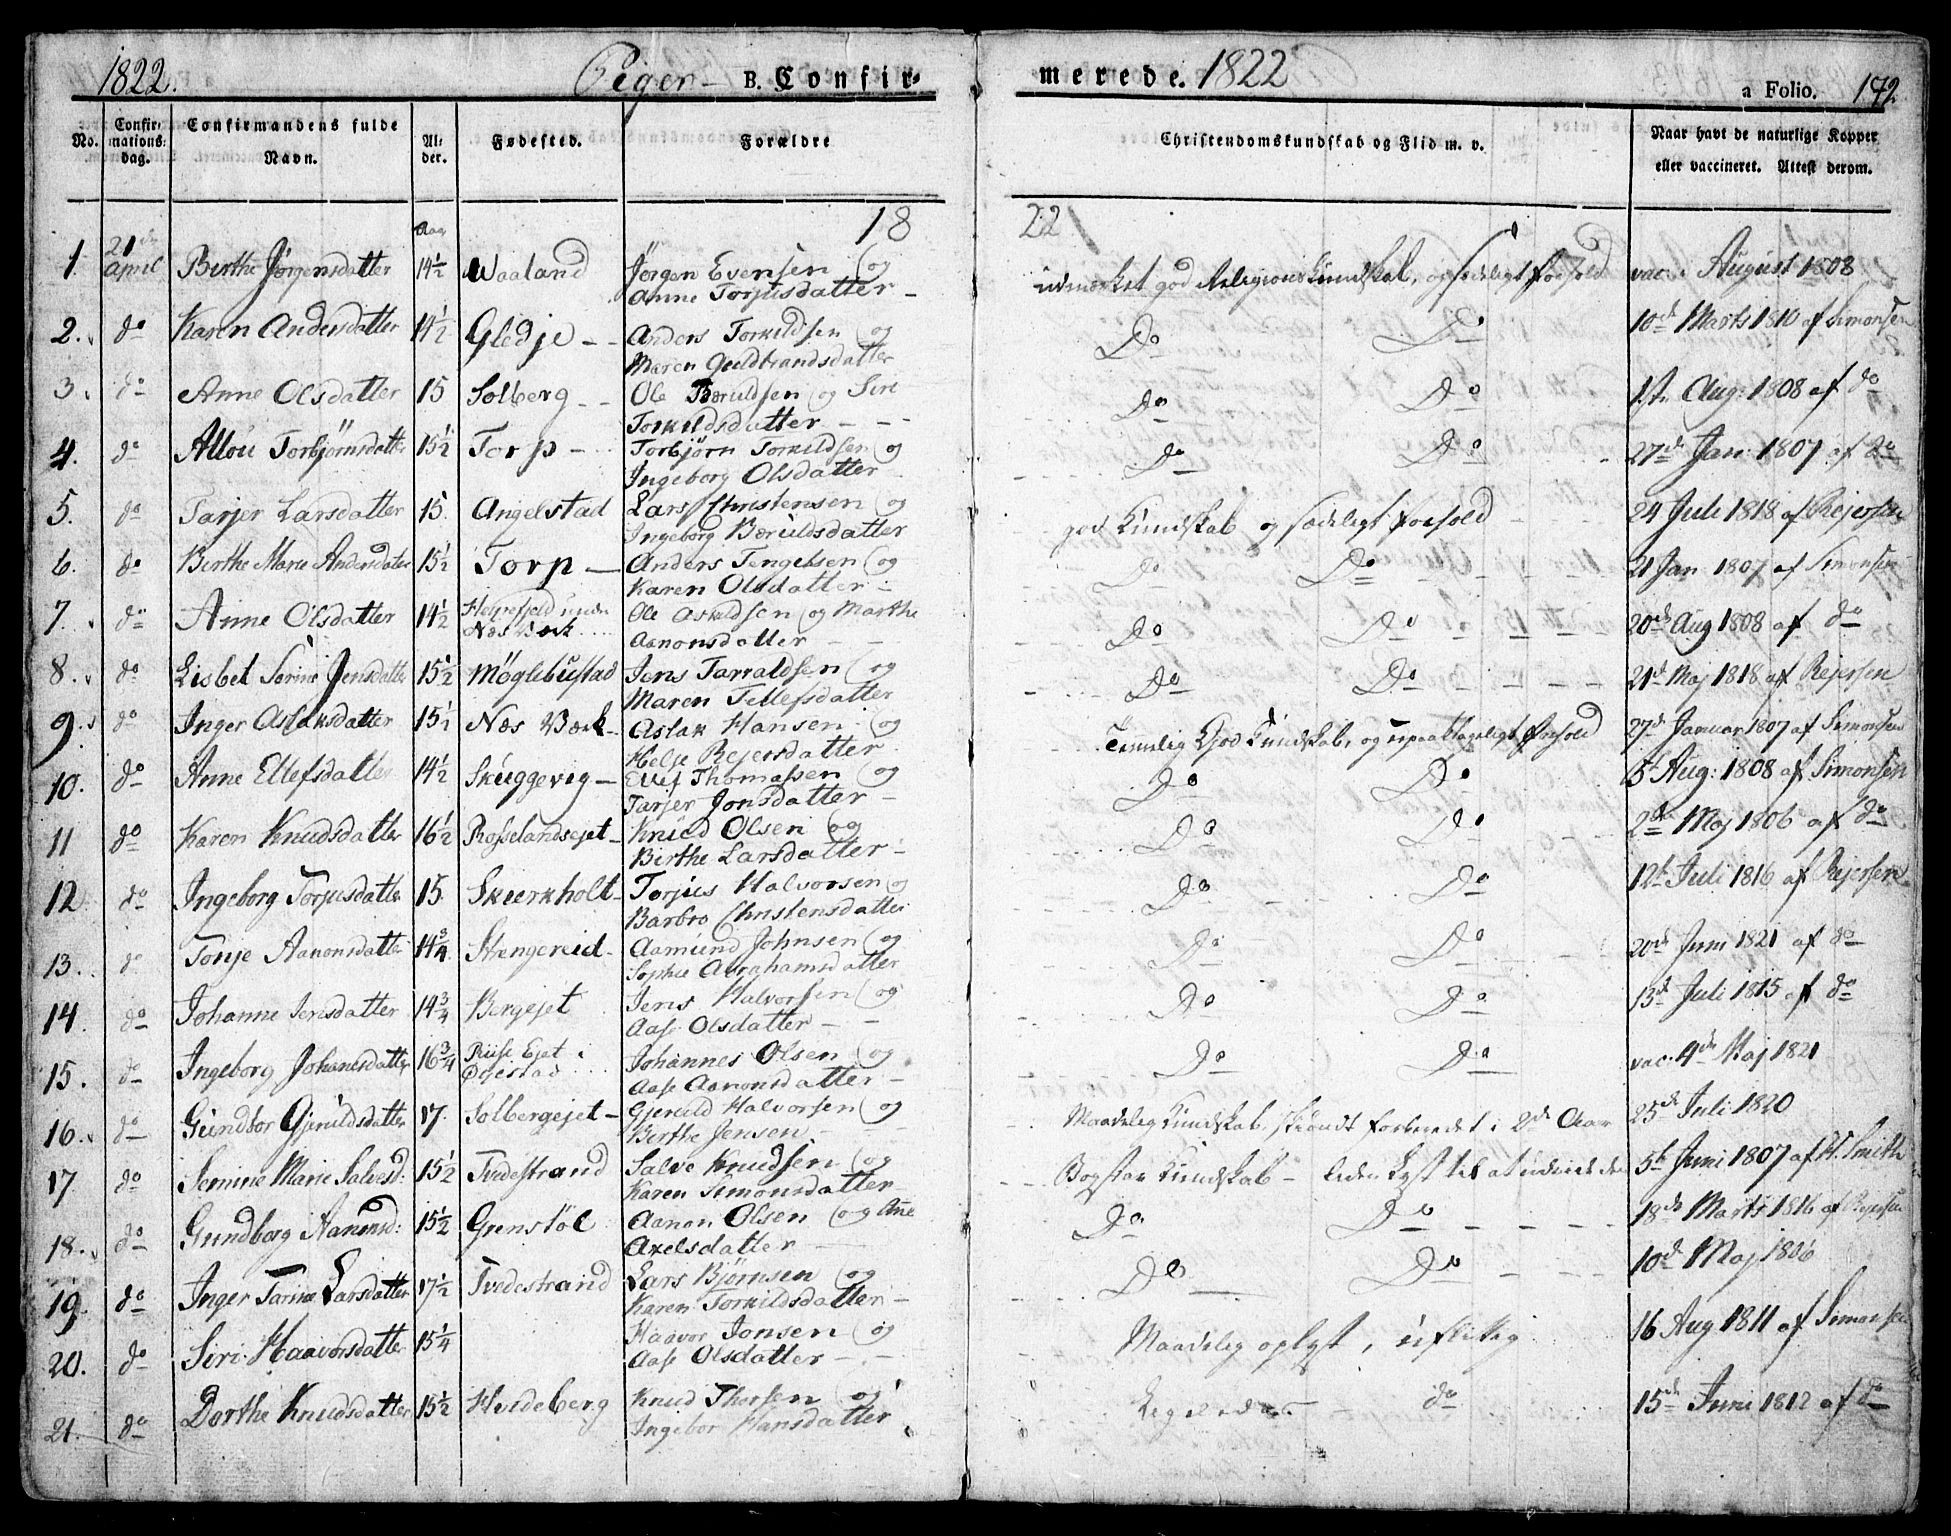 1822. Piger — B. Confir-
merede. 1822 a Folio. 172
No. Confir-mations-dag. Confirmandens fulde Navn. Al-der. Fødested. Forældre Christendomskundskab og Flid m. v. Naar havt de naturlige Kopper eller vaccineret. Attest derom.
18 22
1 21de April Birthe Jørgensdatter 14½ Waaland Jørgen Evensen og Anne Torjusdatter — udmærket god Religionskundskab, og sædeligt Forhold vac. August 1808
2. do Karen Andersdatter 14½ Gledje — Anders Torkildsen og Maren Guldbrandsdatter Do Do 10de Marts 1810 af Simonsen
3. do Anne Olsdatter 15 Solberg — Ole Bæruldsen og Siri Torkildsdatter — Do Do 1ste Aug: 1808 af do
4. do Torbjørnsdatter 15½ Torp — Torbjørn Torkildsen og Ingeborg Olsdatter Do Do 27de Jan: 1807 af do
5. do Tarjer Larsdatter 15. Angelstad Lars Christensen og Ingeborg Bæruldsdatter god Kundskab og sædeligt Forhold 24 Juli 1818 af Rejersen
6. do Birthe Marie Andersdatter 15½ Torp — Anders Tengelsen og Karen Olsdatter — Do Do 21 Jan 1807 af Simonsen
7. do Anne Olsdatter 14½ under Næs Værk Ole Aslldsen og Marthe Aanonsdatter — Do Do 20de Aug 1808 af do
8. do Lisbet Serine Jensdatter 15½ Møglebustad Jens Tarraldsen og Maren Tellefsdatter Do Do 21de Maj 1818 af Rejersen
9. do Inger Aslaksdatter 15½ Næs Værk — Aslak Hansen og Helje Rejersdatter Temmelig God Kundskab, og upaaklageligt Forhold 27de Januar 1807 af Simonsen
10. do Anne Ellefsdatter 14½ Skuggevig — Ellef Thomassen og Tarjer Jonsdatter — Do Do 5t Aug: 1808 af Simonsen
11 do Karen Knudsdatter 16½ Rosselandsejet — Knud Olsen og Birthe Larsdatter — Do Do 2de Maj 1806 af do
12 do Ingeborg Torjusdatter 15. Skierkholt — Torjus Halvorsen og Barbro Christensdatter Do Do 12te Juli 1816 af Rejersen
13. do Tonje Aanonsdatter 14¾ Stengereid — Aamund Johnsen og Sophie Abrahamsdatter Do Do 20de Juni 1821 af do
14 do Johanne Jensdatter 14¾ Bergejet Jens Halvorsen og Aase Olsdatter — Do Do 13de Juli 1815 af do
15. do Ingeborg Johanesdatter 16¾ Riise Ejet i Øiestad Johannes Olsen og Aase Aanonsdatter — Do Do vac: 4de Maj 1821
16. do Gundbor Gjeruldsdatter 17. Solbergejet — Gjeruld Halvorsen og Berthe Jensen — Maadelig Kundskab, skiøndt forberedet i 2de Aar 25de Juli 1820
17 do Semine Marie Salvesd: 15½ Tvedestrand Salve Knudsen og Karen Simonsdatter — Bogstav Kundskab — uden Lyst til at udvide den 5te Juni 1807 af H. Smith
18. do Gundborg Aanonsd: 15½ Grenstøl Aanon Olsen og Ane Axelsdatter — Do Do 18de Marts 1816 af Rejersen
19. do Inger Tarine Larsdatter 17½ Tvedestrand Lars Bjørnsen og Karen Torkildsdatter — Do Do 10de Maj 1806
20. do Siri Haavorsdatter 15¼ Haavor Jonsen og Aase Olsdatter — Maadelig oplyst, uflittig 16 Aug 1811 af Simonsen
21. do Dorthe Knudsdatter 15½ Hvideberg Knud Thorsen og Ingebor Hansdatter Ligeledes — do 15de Juni 1812 af do